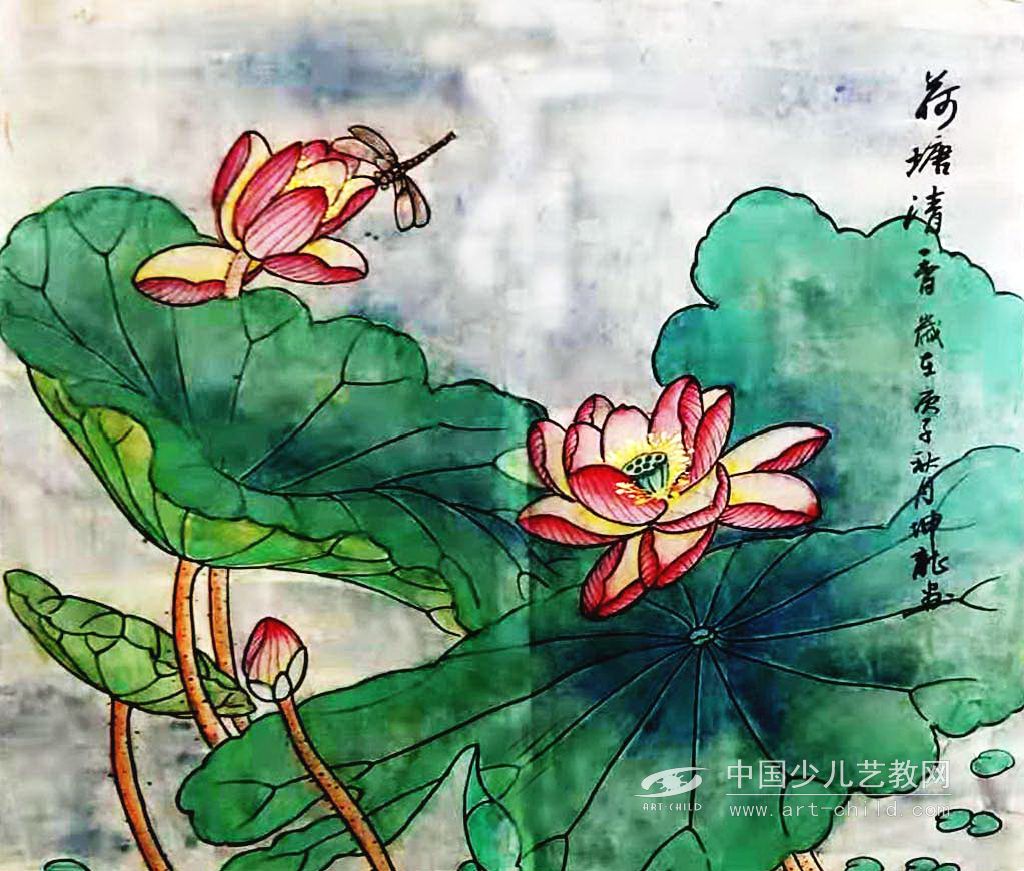 荷塘清香
歲在庚子秋月坤龍畫
中国少儿艺教网
ART-CHILD
www.art-child.com